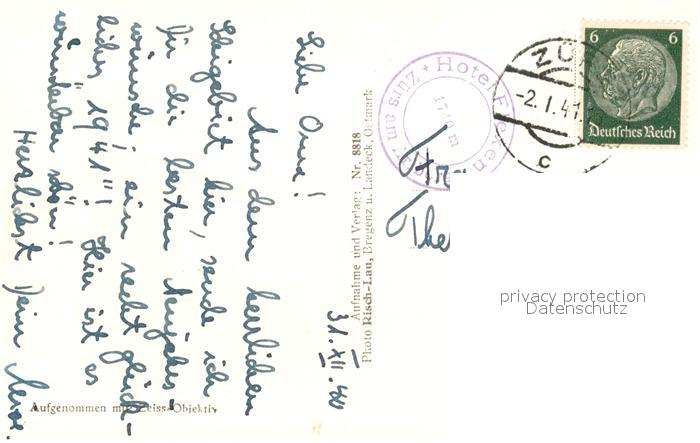 31.XII.40
Liebe Oma!
Aus dem herrlichen
Skigebiet hier, sende ich
Dir die besten Neujahrs-
wünsche, ein recht glück-
liches "1941"! Hier ist es
wunderbar schön!
Herzlichst Deine
Aufgenommen mit Zeiss-Objektiv
Aufnahme und Verlag: Nr. 8818
Photo Risch-Lau, Bregenz u. Landeck, Ostmark
Zürs am
Hotel
ZÜRS
-2.1.41
c
6 6
Deutsches Reich
The
privacy protection
Datenschutz